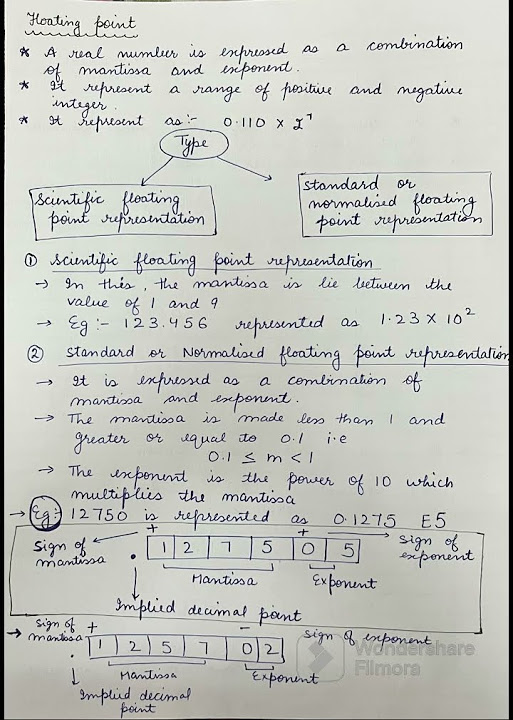 Floating point
* A real number is expressed as a combination
of mantissa and exponent.
* It represent a range of positive and negative
integer.
* It represent as :- 0.110 × 2⁷
Type
Scientific floating
point representation
standard or
normalised floating
point representation
① Scientific floating point representation
→ In this, the mantissa is lie between the
value of 1 and 9
→ Eg :- 123.456 represented as 1.23 × 10²
② Standard or Normalised floating point representation
→ It is expressed as a combination of
mantissa and exponent.
→ The mantissa is made less than 1 and
greater or equal to 0.1 i.e
0.1 ≤ m < 1
→ The exponent is the power of 10 which
multiplies the mantissa
→ Eg:- 12750 is represented as 0.1275 E5
Sign of
mantissa
+ +
. 1 2 7 5 0 5
Sign of
exponent
Mantissa
Exponent
Implied decimal point
→ Sign of
mantissa
+ -
. 1 2 5 7 0 2
Sign of exponent
Mantissa
Exponent
Implied decimal
point
Wondershare
Filmora